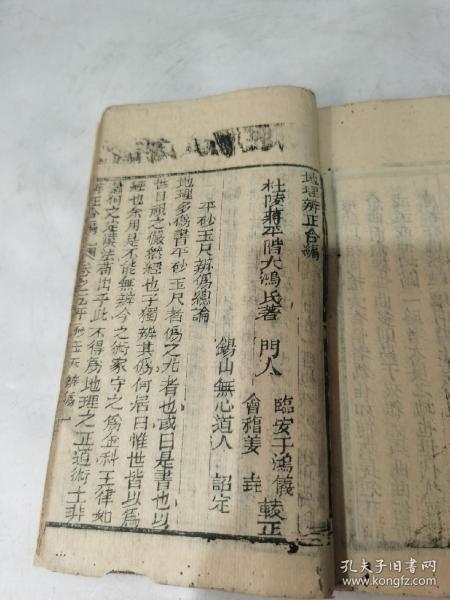 地理辨正合編
杜陵蔣平階大鴻氏著 門人
臨安于鴻儀
會稽姜 垚
較正
錫山無心道人 詔定
平砂玉尺辨偽總論
地理多偽書平砂玉尺者偽之尤者也或曰是書也以
世目視之儼然經也子獨辨其偽何居曰惟世皆以為
經也余用是不能無辨今之術家守之為金科玉律如
蕭何之定漢法苟出乎此不得為地理之正道術士非
辨正合編 卷之五平砂玉尺 辨偽 一
孔夫子旧书网
www.kongfz.com